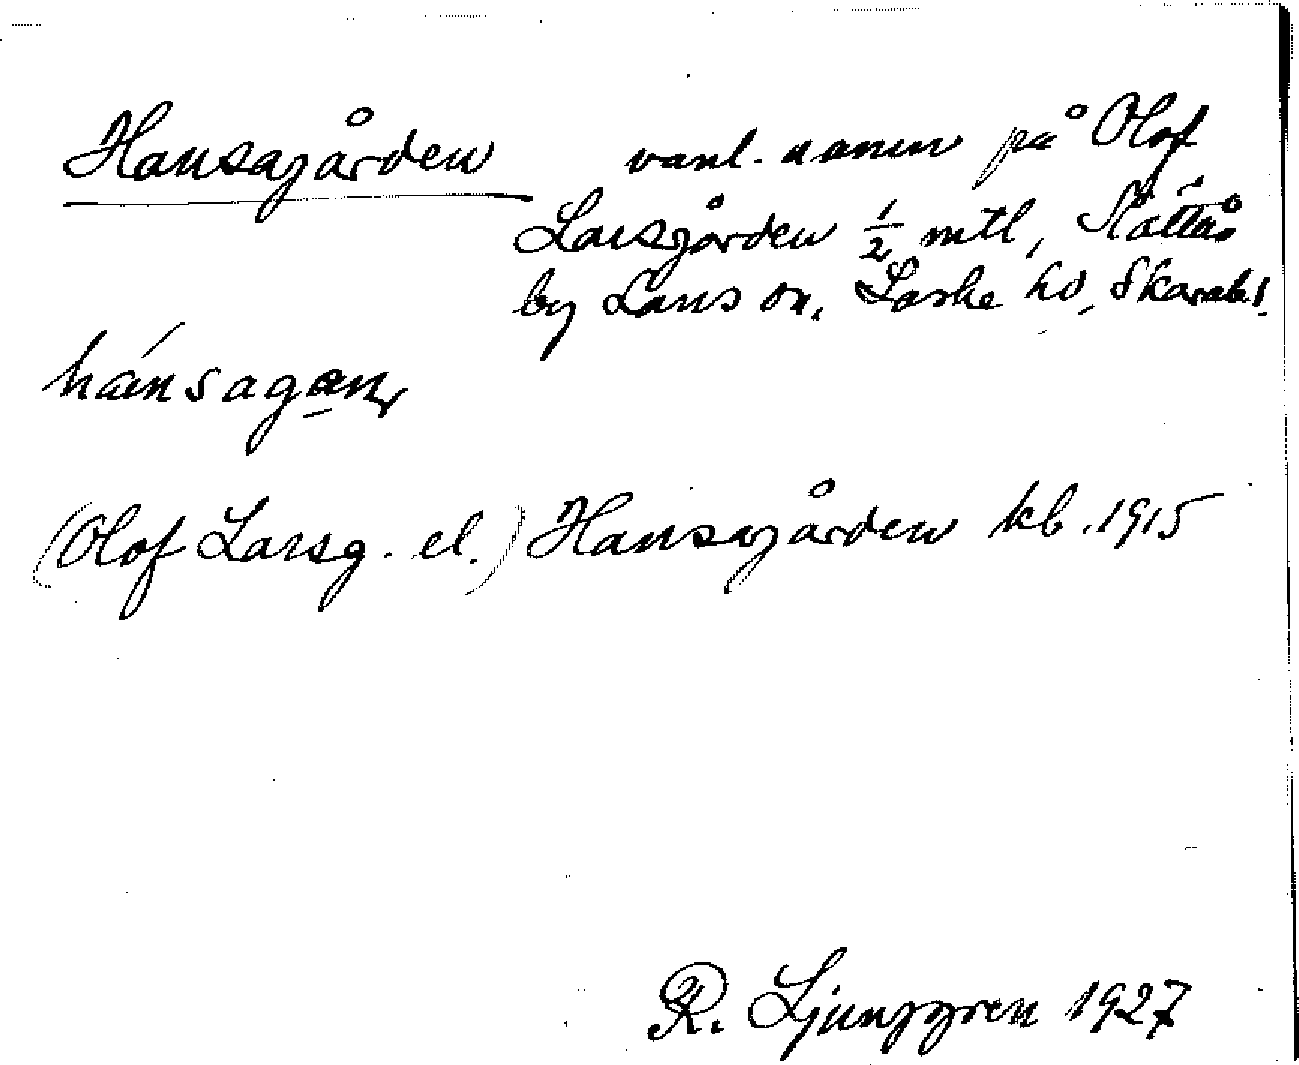 Hansagården vanl. namn på Olof
Larsgården 1/2 mtl, Slättås
by Lans sn, Laske hd, Skarab l.
hánsagan
(Olof Larsg. el.) Hansagården kb. 1915
R. Ljunggren 1927